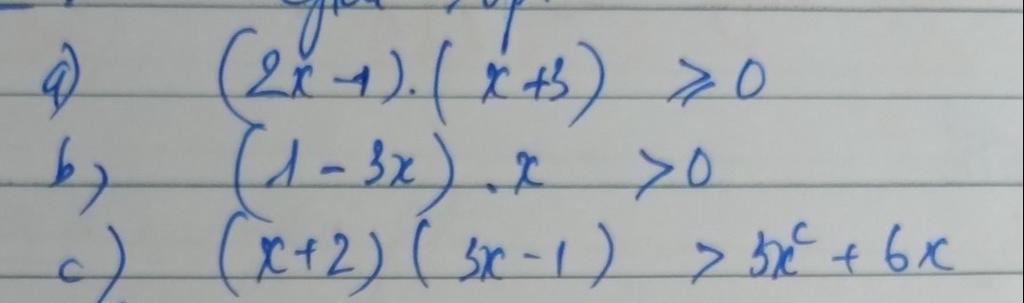 a) (2x-1).(x+3) ≥ 0
b, (1-3x).x > 0
c) (x+2)(3x-1) > 3x² + 6x